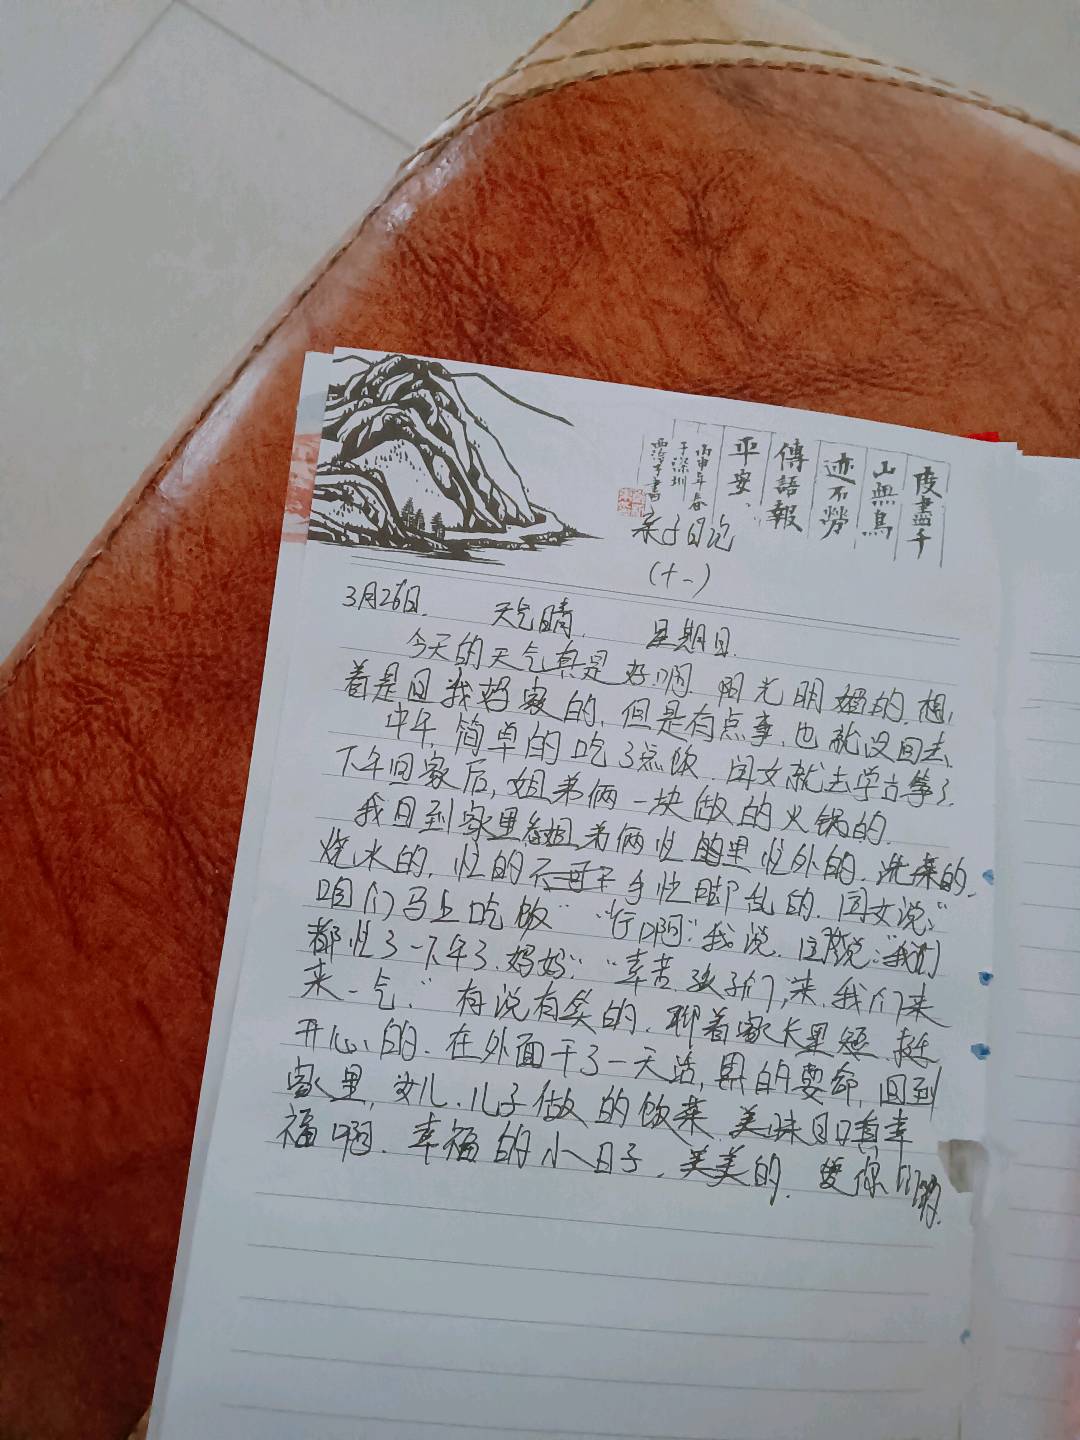 度盡千
山無鳥
迹不勞
傳語報
平安、
丙申年春
于深圳
書
亲子日记
(十一)
3月26日. 天气晴. 星期日.
今天的天气真是好啊. 阳光明媚的. 想,
着是回我妈家的, 但是有点事, 也就没回去.
中午, 简单的吃了点饭. 闰文就去学古筝了.
下午回家后, 姐弟俩一块做的火锅的.
我回到家里看姐弟俩忙的里忙外的. 洗菜的.
烧水的, 忙的不可 手忙脚乱的. 闰文说:“
咱们马上吃饭” “行啊.”我说. 说:“我们
都忙了一下午了. 妈妈.” “辛苦. 孩子们, 来. 我们来
来一气.” 有说有笑的. 聊着家长里短. 挺
开心的. 在外面干了一天活, 累的要命, 回到
家里, 女儿. 儿子做的饭菜. 美味可口有幸
福啊. 幸福的小日子. 美美的. 爱你们哟.